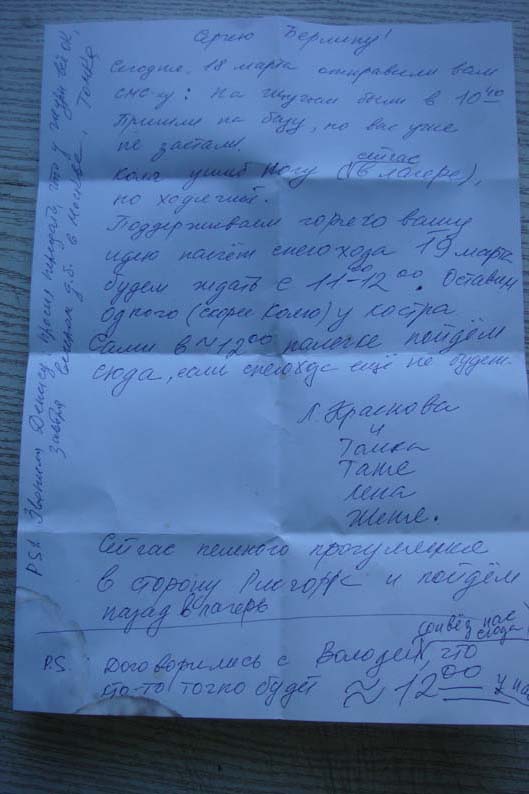 Сергею Берлину!
Сегодня, 18 марта отправили вам
СМС-ку: на были в 10 40
Пришли на базу, но вас уже
не застали.
Коля ушиб ногу (сейчас в лагере),
но ходячий.
Поддерживаем горячо вашу
идею насчёт снегохода 19 марта
будем ждать с 11 00-12 00. Оставим
одного (скорее Колю) у костра
Сами в ≈12 00 налегке пойдём
сюда, если снегохода ещё не будет.
Л. Краснова
и
Таня
Лена
Женя.
Сейчас немного прогуляемся
в сторону Рисчорр и пойдём
назад в лагерь
P.S. Договорились с Володей, что
кто-то точно будет ≈ 12 00 у нас
PS1. Звонили Денису, просил передать, что у Жени всё ОК,
завтра д.б. в Москве.